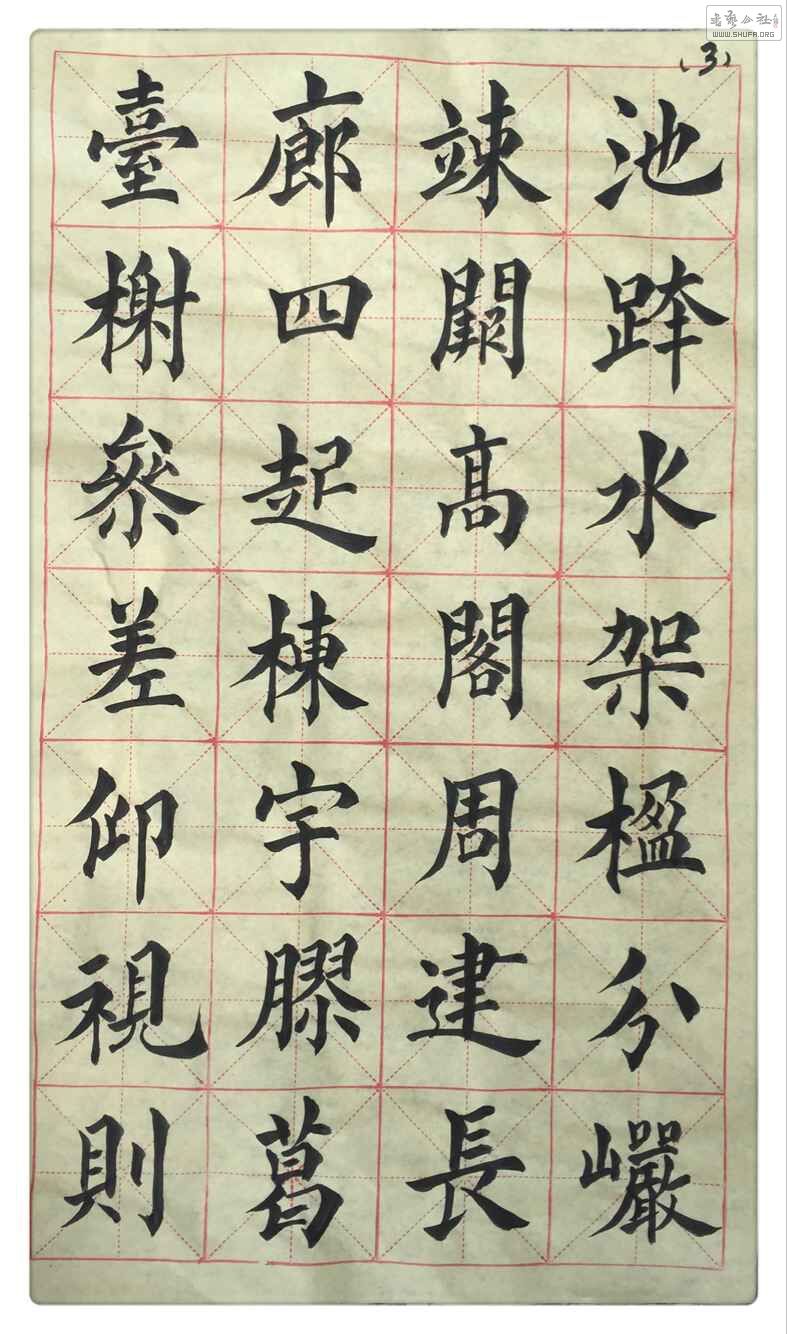 书艺公社
WWW.SHUFA.ORG
(3)
池跨水架楹分巘
竦闕高閣周建長
廊四起棟宇膠葛
臺榭參差仰視則